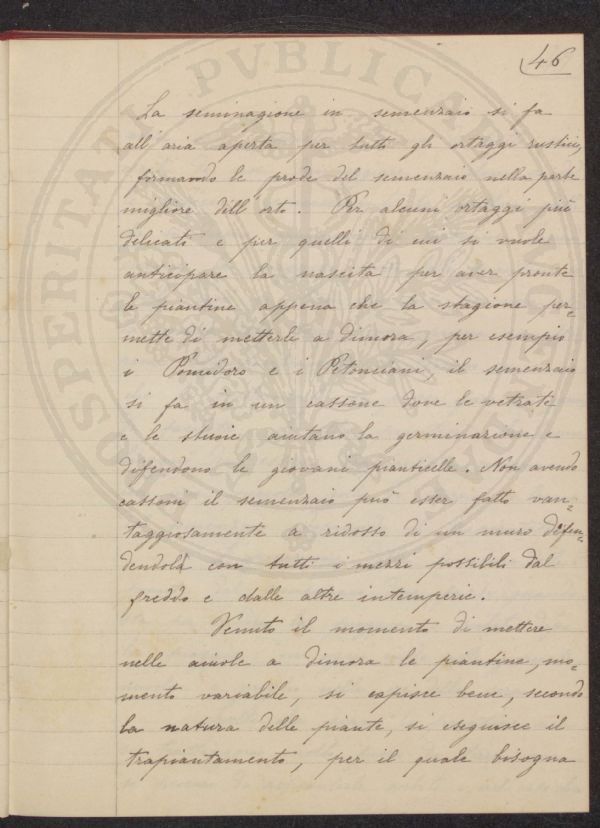 46
La seminagione in semenzaio si fa
all'aria aperta per tutti gli ortaggi rustici,
formando le prode del semenzaio nella parte
migliore dell'orto. Per alcuni ortaggi più
delicati e per quelli di cui si vuole
anticipare la nascita per aver pronte
le piantine appena che la stagione per=
mette di metterle a dimora, per esempio
i Pomidoro e i Petonciani, il semenzaio
si fa in un cassone dove le vetrate
e le stuoie aiutano la germinazione e
difendono le giovani pianticelle. Non avendo
cassoni il semenzaio può esser fatto van=
taggiosamente a ridosso di un muro difen=
dendola con tutti i mezzi possibili dal
freddo e dalle altre intemperie.
Venuto il momento di mettere
nelle aiuole a dimora le piantine, mo=
mento variabile, si capisce bene, secondo
la natura delle piante, si eseguisce il
trapiantamento, per il quale bisogna
PROSPERITATI PVBLICAE